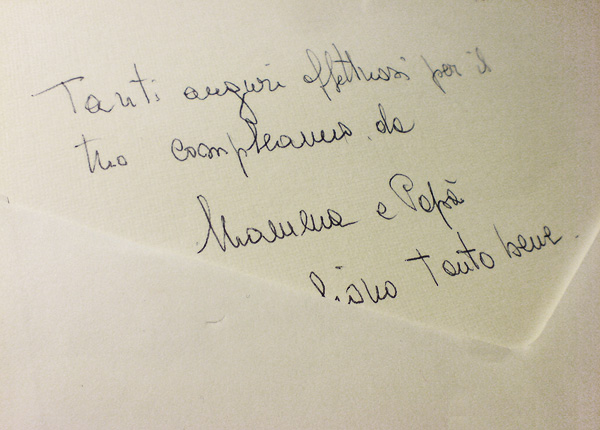 Tanti auguri affettuosi per il
tuo compleanno da
Mamma e Papà
tanto bene.